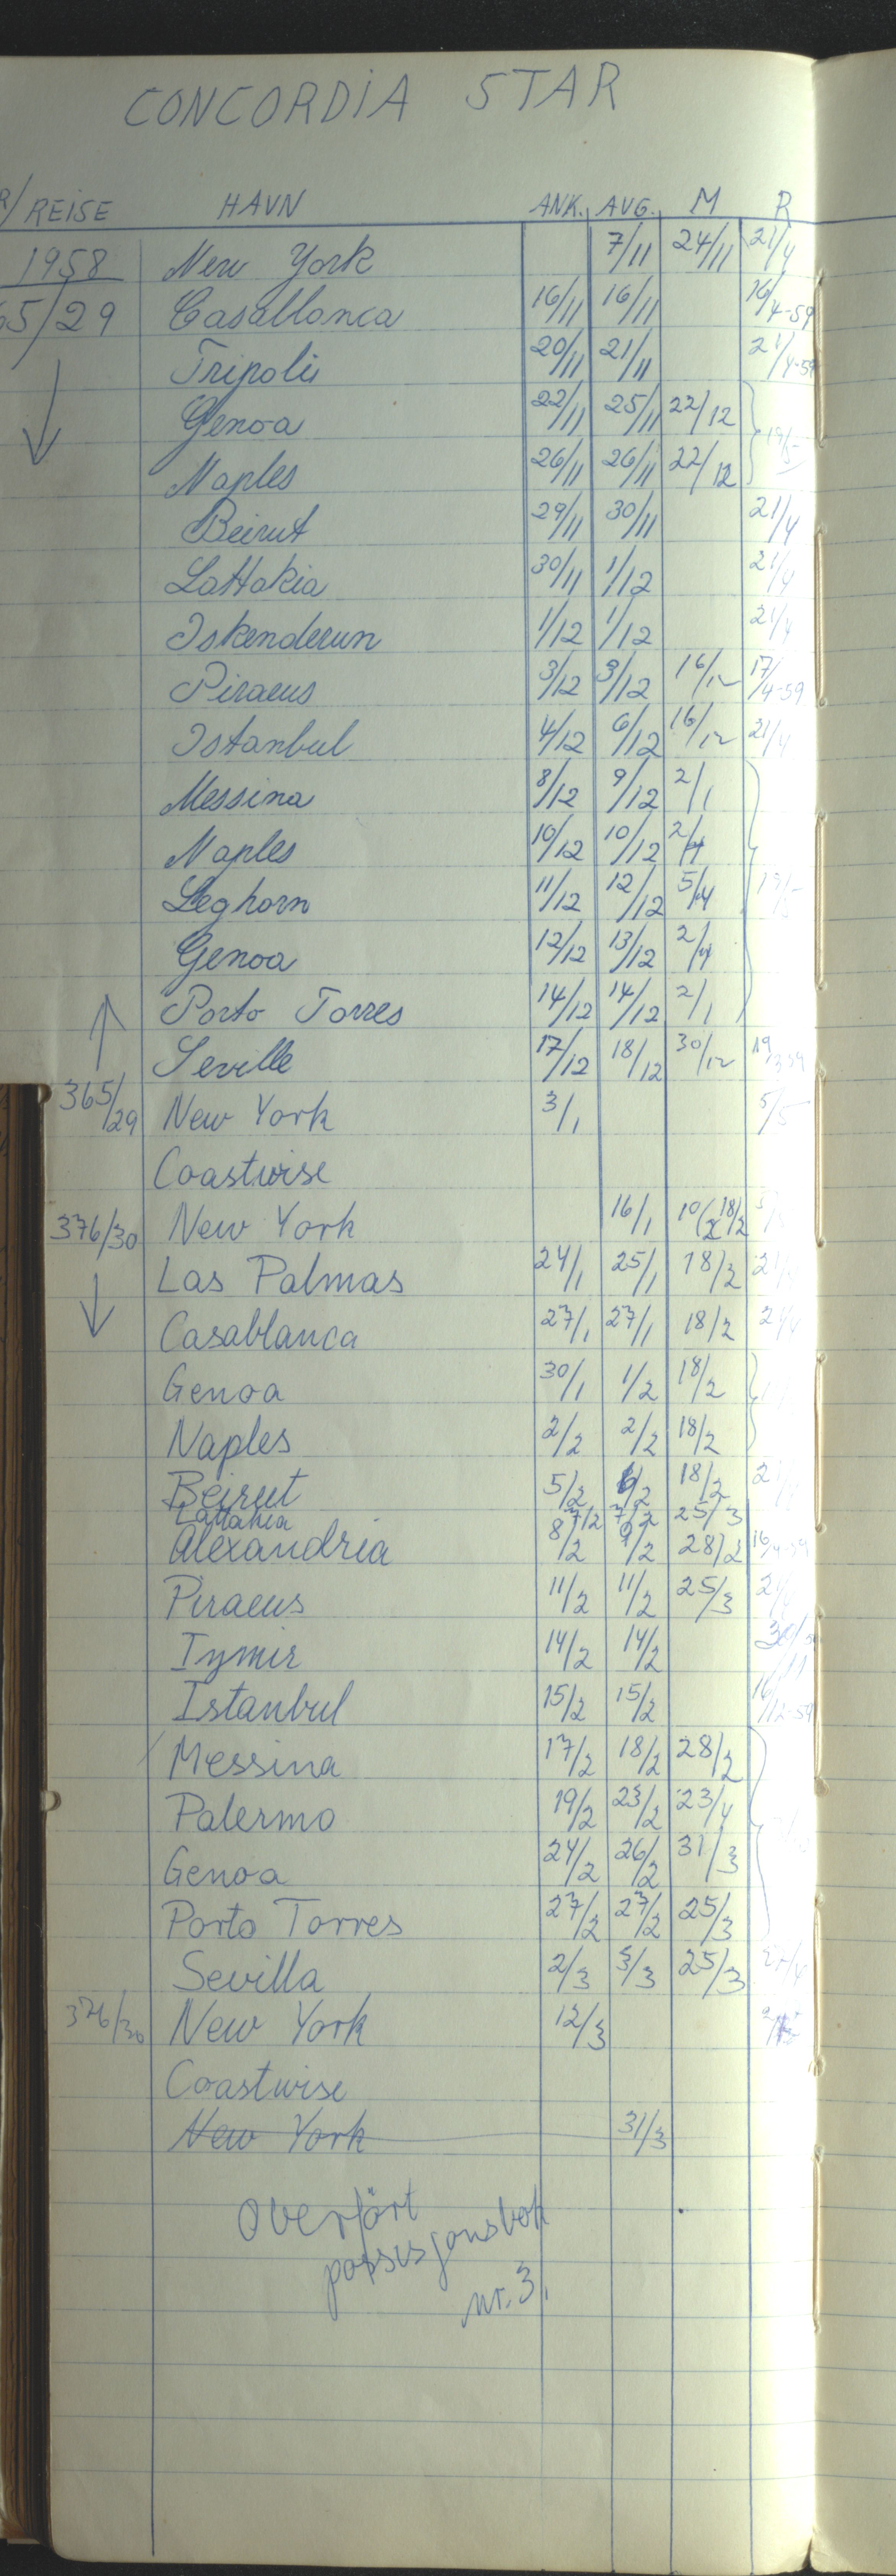 CONCORDIA STAR
/REISE HAVN ANK. AVG. M R
1958 New York 7/11 24/11 21/4
65/29 Casablanca 16/11 16/11 16/4-59
Tripolis 20/11 21/11 21/4-59
Genoa 22/11 25/11 22/12
Naples 26/11 26/11 22/12
Beirut 29/11 30/11 21/4
Lattakia 30/11 1/12 21/4
Iskenderun 1/12 1/12 21/4
Piraeus 3/12 3/12 16/12 17/4-59
Istanbul 4/12 6/12 16/12 21/4
Messina 8/12 9/12 2/1
Naples 10/12 10/12 2/1
Leghorn 11/12 12/12 5/1 19/5
Genoa 12/12 13/12 2/1
Porto Torres 14/12 14/12 2/1
Seville 17/12 18/12 30/12
365/29 New York 3/1 5/5
Coastwise
376/30 New York 16/1 10/2 18/2
Las Palmas 24/1 25/1 18/2
Casablanca 27/1 27/1 18/2
Genoa 30/1 1/2 18/2
Naples 2/2 2/2 18/2
Beirut 5/2 6/2 18/2
Lattakia 7/2 7/2 25/3
Alexandria 8/2 9/2 28/2
Piraeus 11/2 11/2 25/3
Izmir 14/2 14/2
Istanbul 15/2 15/2 16/12-59
Messina 17/2 18/2 28/2
Palermo 19/2 23/2 23/4
Genoa 24/2 26/2 31/3
Porto Torres 27/2 27/2 25/3
Sevilla 2/3 3/3 25/3
376/30 New York 12/3
Coastwise
New York 31/3
Overført
possisjonsbok
nr. 3.